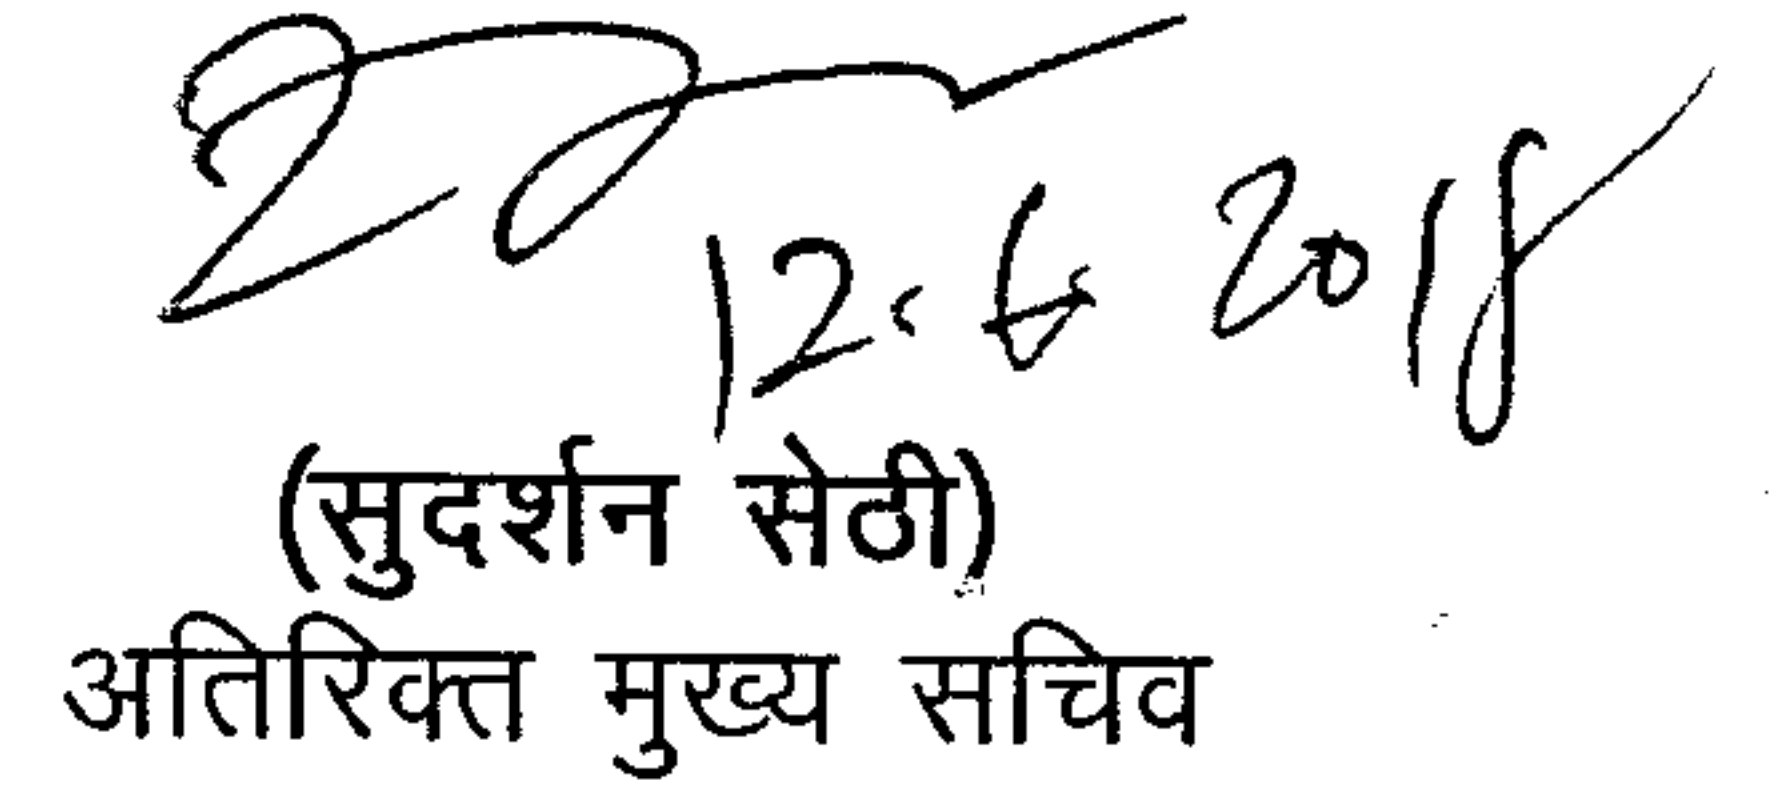 12. 6 2018
(सुदर्शन सेठी)
अतिरिक्त मुख्य सचिव